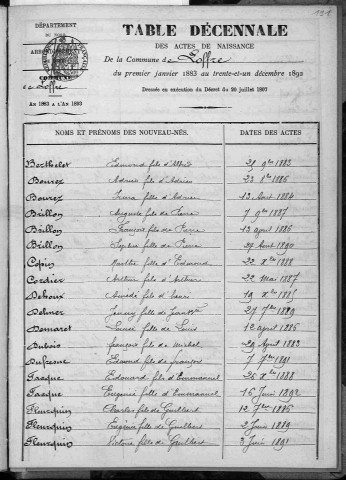 121
DÉPARTEMENT
DU NORD
TABLE DÉCENNALE
DES ACTES DE NAISSANCE
ARRONDISSEMENT
De la Commune de Loffre
COMMUNE
de Loffre
du premier janvier 1883 au trente-et-un décembre 1892
An 1883 à l'An 1893
Dressée en exécution du Décret du 20 juillet 1807
NOMS ET PRÉNOMS DES NOUVEAU-NÉS. DATES DES ACTES
Berthelot Edmond fils d'Alfred 29 9bre 1883
Bourez Adrien fils d'Adrien 23 1886
Bourez fils d'Adrien 13 Août 1884
Brillon Auguste fils de Pierre 7 9bre 1887
Brillon François fils de Pierre 13 août 1885
Brillon Sophie fille de Pierre 29 Août 1890
Copin Marthe fille d'Edmond 22 Xbre 1888
Cordier Arthur fils d'Arthur 22 Mai 1887
Dehoux fils d'Henri 19 Xbre 1885
Delmer fille de Jean Bte 27 7bre 1890
Demarot Louise fille de Louis 12 avril 1886
Dubois François fils de Michel 29 Avril 1883
Dufresne Edmond fils de François 7 7bre 1891
Facque Edouard fils d'Emmanuel 26 Xbre 1888
Facque Eugénie fille d'Emmanuel 15 Juin 1892
Fleurquin Charles fils de Guilbert 12 7bre 1886
Fleurquin Eugénie fille de Guilbert 2 Juin 1889
Fleurquin Victoire fille de Guilbert 3 Juin 1891